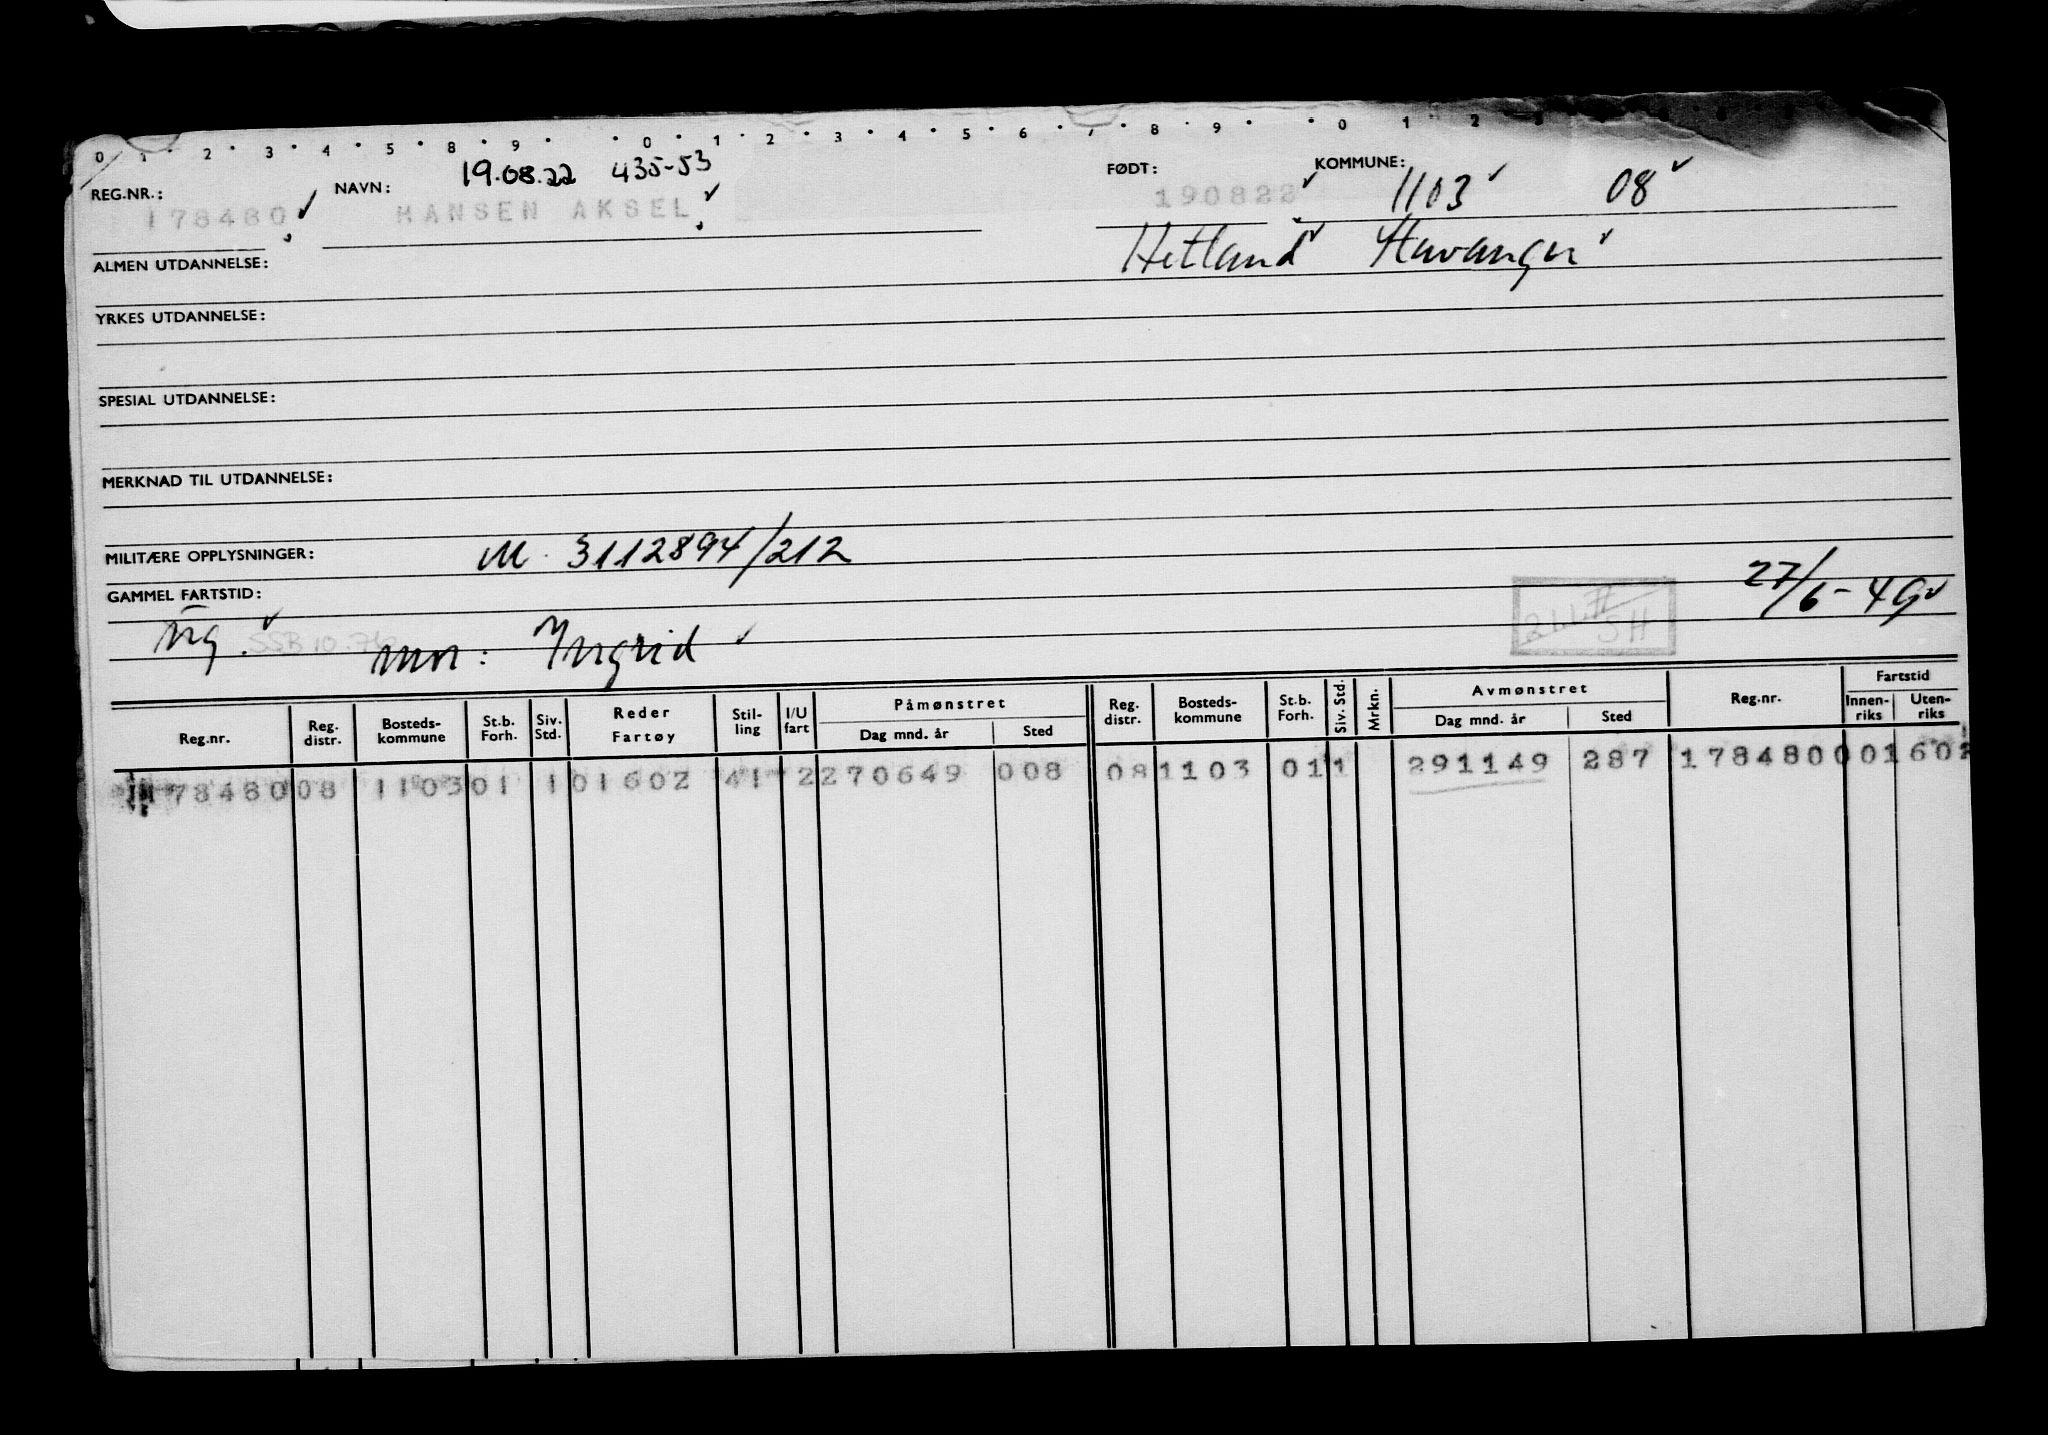 0 1 · 2 · 3 · 4 · 5 · 8 · 9 · · 0 · 1 · 2 · 3 · 4 · 5 · 6 · 7 · 8 · 9 · · 0 · 1 · 2
REG.NR.: NAVN: 19.08.22 435-53 FØDT: KOMMUNE:
178480 HANSEN AKSEL 190822 1103 08
ALMEN UTDANNELSE: Hetland Stavanger
YRKES UTDANNELSE:
SPESIAL UTDANNELSE:
MERKNAD TIL UTDANNELSE:
MILITÆRE OPPLYSNINGER: M. 3112894/212
GAMMEL FARTSTID: 27/6-49
ug. SSB 10.76 mor: Ingrid SH
Reg.nr. Reg. distr. Bosteds-kommune St.b. Forh. Siv. Std. Reder Fartøy Stil-ling I/U fart Påmønstret Dag mnd. år Sted Reg. distr. Bosteds-kommune St.b. Forh. Siv. Std. Mrkn. Avmønstret Dag mnd. år Sted Reg.nr. Fartstid Innen-riks Uten-riks
178480 08 1103 01 1 01602 41 2 270649 008 08 1103 01 1 291149 287 178480 001602